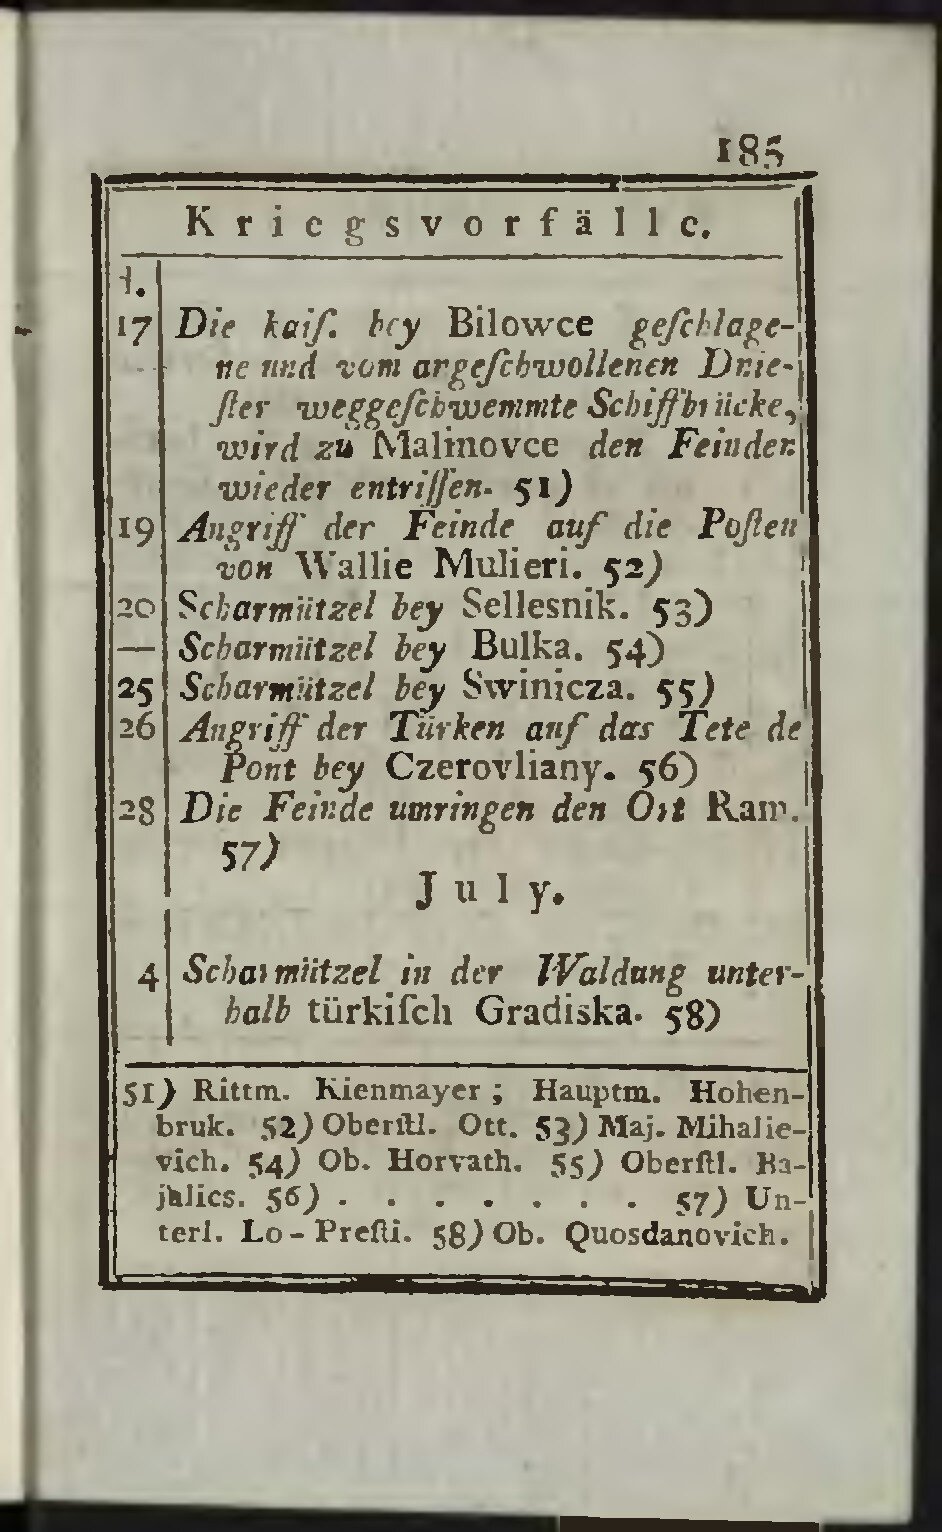 185
Kriegsvorfälle.
17 Die kaiſ. bey Bilowce geſchlage-
ne und vom angeſchwollenen Dnie-
ſter weggeſchwemmte Schiffbrücke,
wird zu Malinovce den Feinden
wieder entriſſen. 51)
19 Angriff der Feinde auf die Poſten
von Wallie Mulieri. 52)
20 Scharmützel bey Sellesnik. 53)
— Scharmützel bey Bulka. 54)
25 Scharmützel bey Swinicza. 55)
26 Angriff der Türken auf das Tete de
Pont bey Czerovliany. 56)
28 Die Feinde umringen den Ort Ram.
57)
July.
4 Scharmützel in der Waldung unter-
halb türkiſch Gradiska. 58)
51) Rittm. Kienmayer; Hauptm. Hohen-
bruk. 52) Oberſtl. Ott. 53) Maj. Mihalie-
vich. 54) Ob. Horvath. 55) Oberſtl. Ba-
jalics. 56) . . . . . . . 57) Un-
terl. Lo-Preſti. 58) Ob. Quosdanovich.